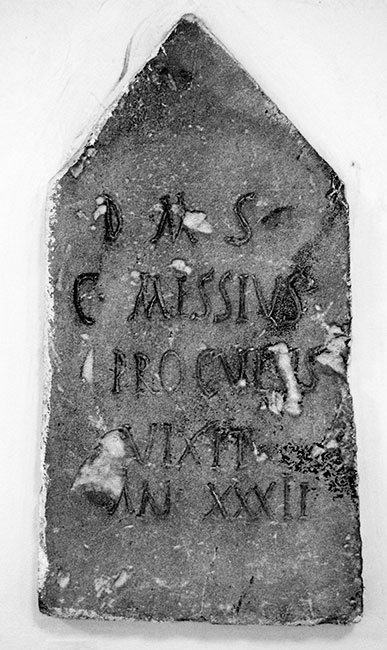 D M S
C MESSIVS
PROCVLVS
VIXIT
AN XXXII